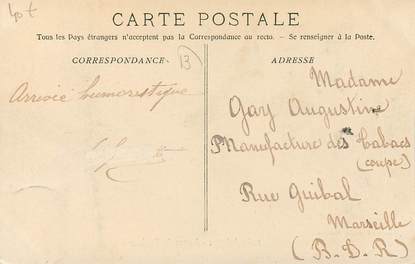 40 t
CARTE POSTALE
Tous les Pays étrangers n'acceptent pas la Correspondance au recto. - Se renseigner à la Poste.
CORRESPONDANCE
13
ADRESSE
Arrivée humorestique
Madame
Gay Augustine
Manufacture des Tabacs
(coupe)
Rue Guibal
Marseille
(B.D.R)